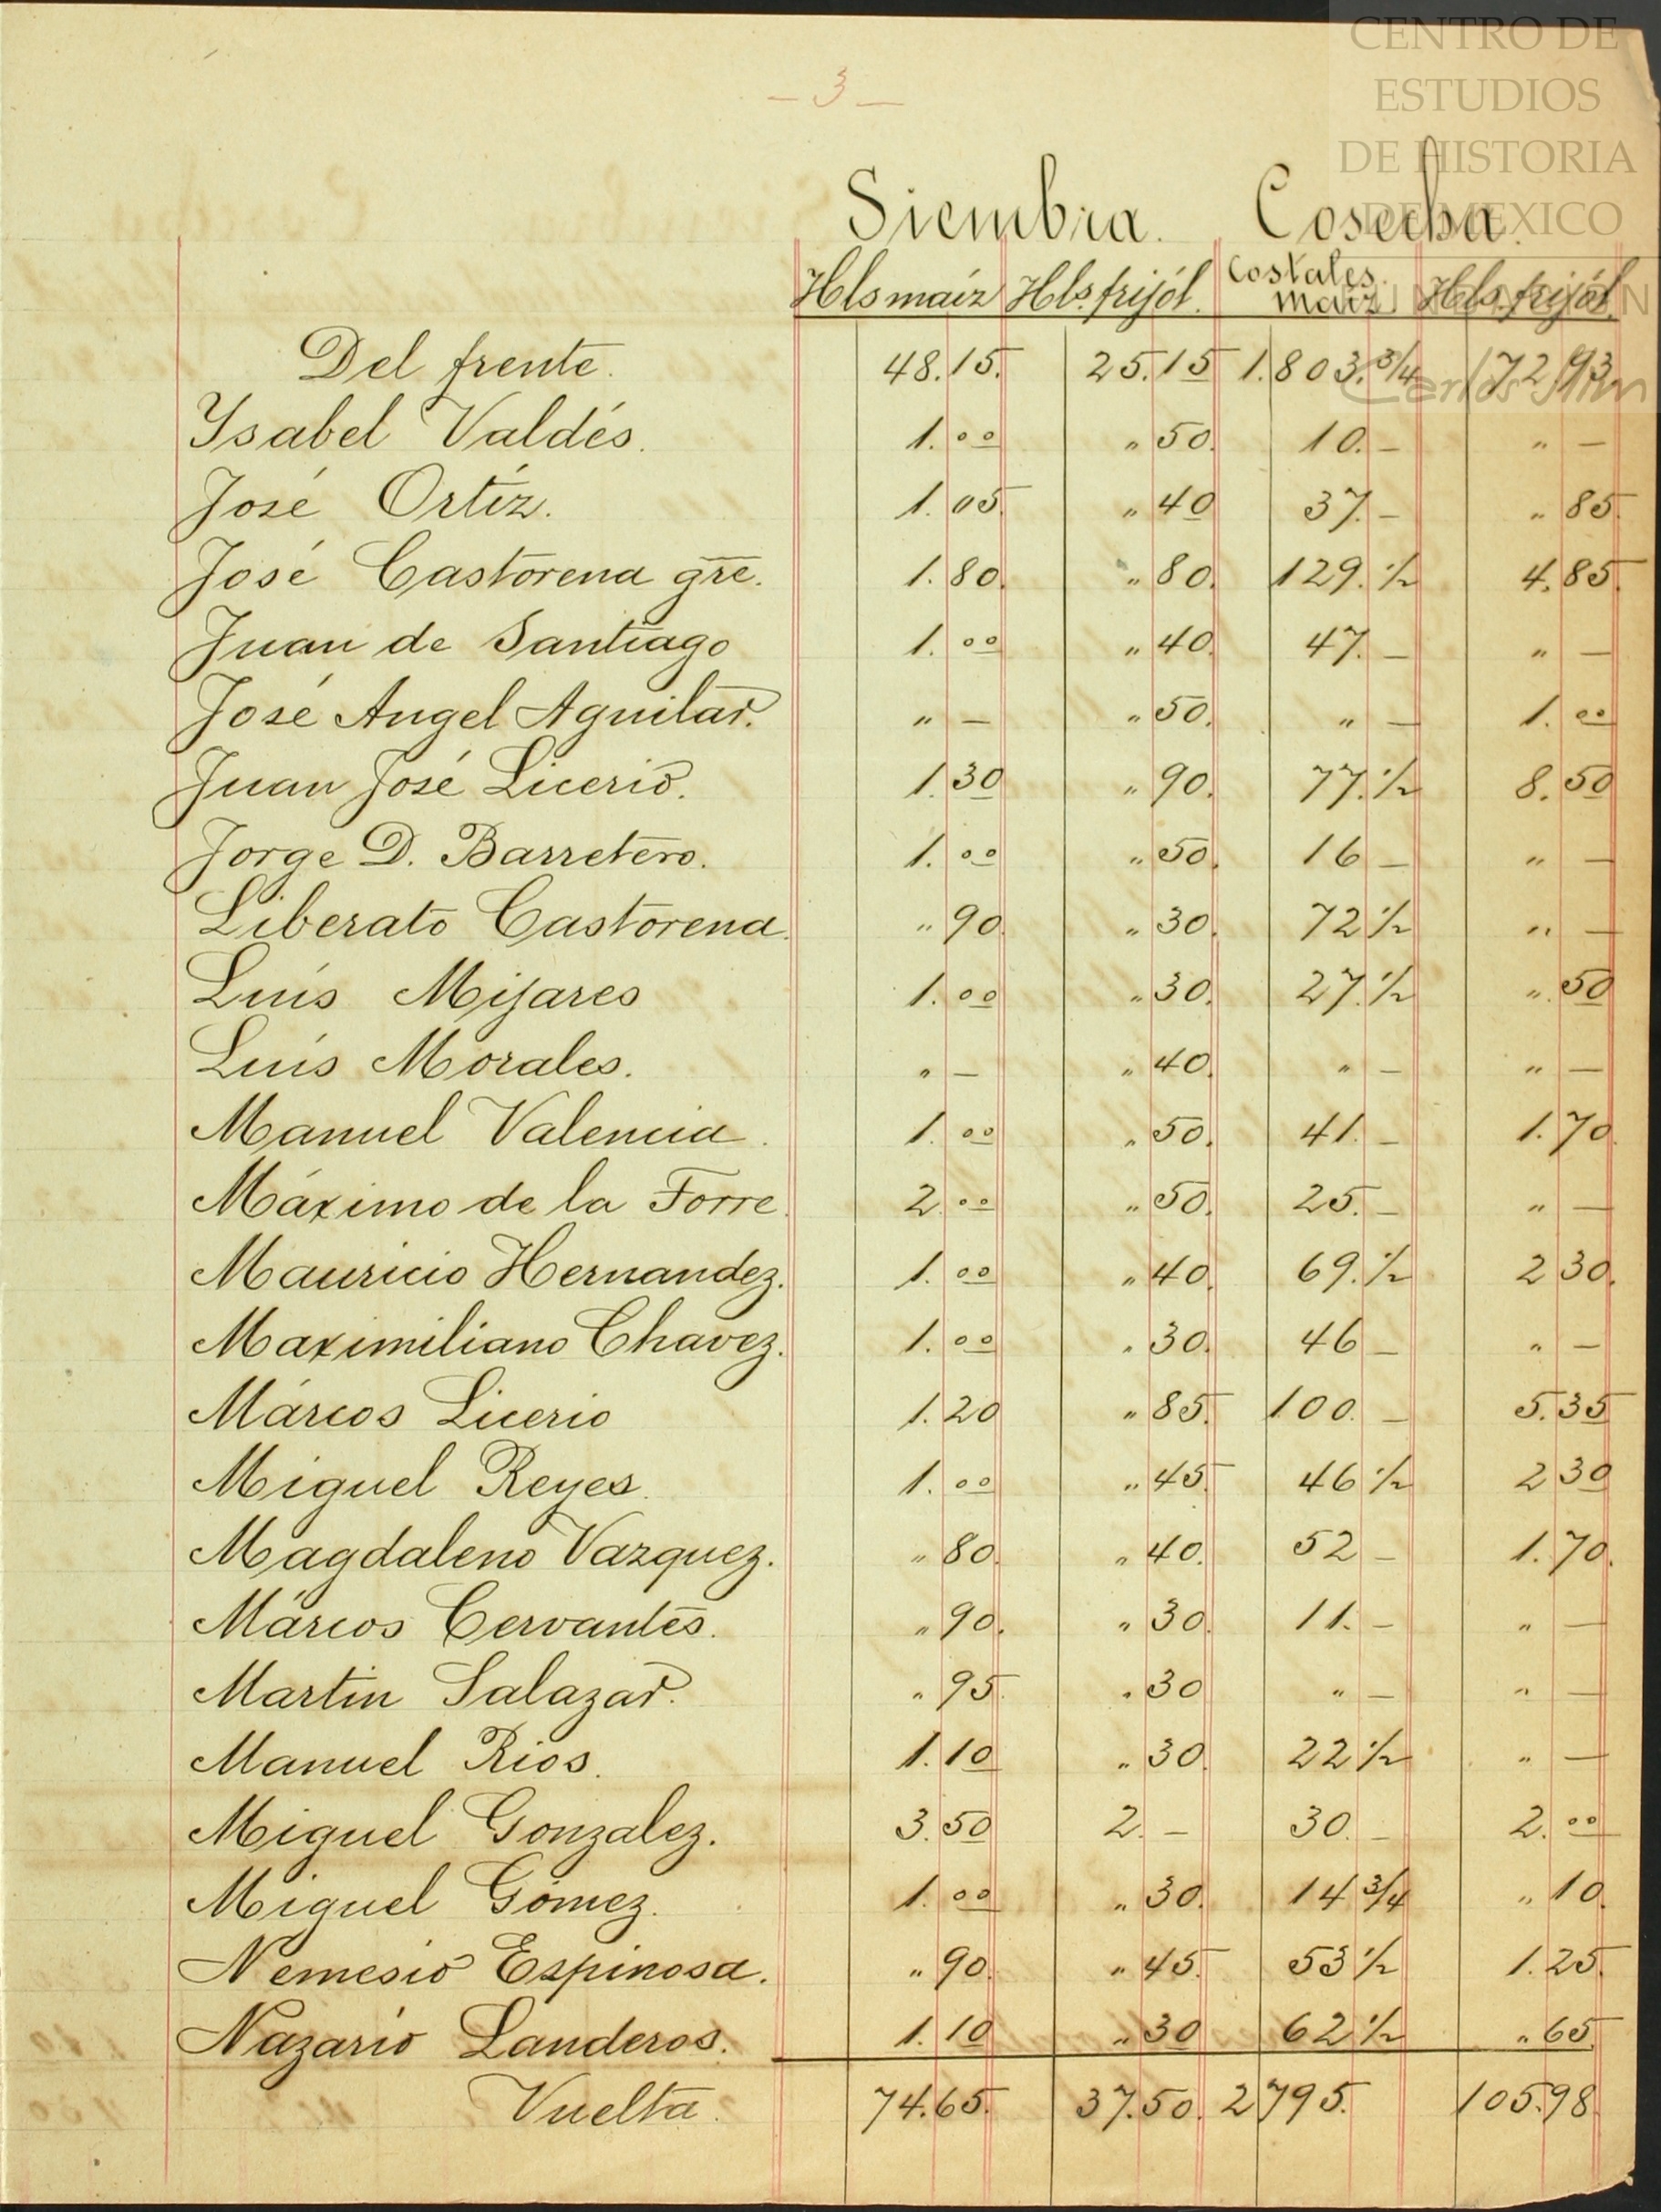 CENTRO DE
ESTUDIOS
DE HISTORIA
DE MEXICO
Carlos Slim
- 3 -
Siembra. Cosecha.
Hls maíz Hls. frijól. Costales maíz. Hls. frijól.
Del frente. 48.15. 25.15 1.803.3/4 72 93
Ysabel Valdés. 1.00 " 50. 10. - " -
José Ortíz. 1.05. " 40 37. - " 85.
José Castorena gre. 1.80. " 80. 129. 1/2 4.85.
Juan de Santiago 1.00 " 40. 47. - " -
José Angel Aguilar. " - " 50. " - 1.00
Juan José Licerio. 1.30 " 90. 77. 1/2 8.50
Jorge D. Barretero. 1.00 " 50. 16 - " -
Liberato Castorena. " 90. " 30. 72 1/2 " -
Luís Mijares 1.00 " 30. 27. 1/2 " 50
Luís Morales. " - " 40. " - " -
Manuel Valencia. 1.00 " 50. 41. - 1.70.
Máximo de la Torre. 2.00 " 50. 25. - " -
Mauricio Hernandez. 1.00 " 40. 69. 1/2 2 30.
Maximiliano Chavez. 1.00 " 30. 46 - " -
Márcos Licerio 1.20 " 85. 100. - 5.35
Miguel Reyes. 1.00 " 45. 46 1/2 2 30
Magdaleno Vazquez. " 80. " 40. 52 - 1.70.
Márcos Cervantes. " 90. " 30. 11. - " -
Martin Salazar. " 95. " 30 " - " -
Manuel Rios. 1.10 " 30. 22 1/2 " -
Miguel Gonzalez. 3.50 2. - 30. - 2.00
Miguel Gómez. 1.00 " 30. 14 3/4 " 10.
Nemesio Espinosa. " 90. " 45. 53 1/2 1.25.
Nazario Landeros. 1.10 " 30 62 1/2 " 65.
Vuelta. 74.65. 37.50. 2795. 105.98.